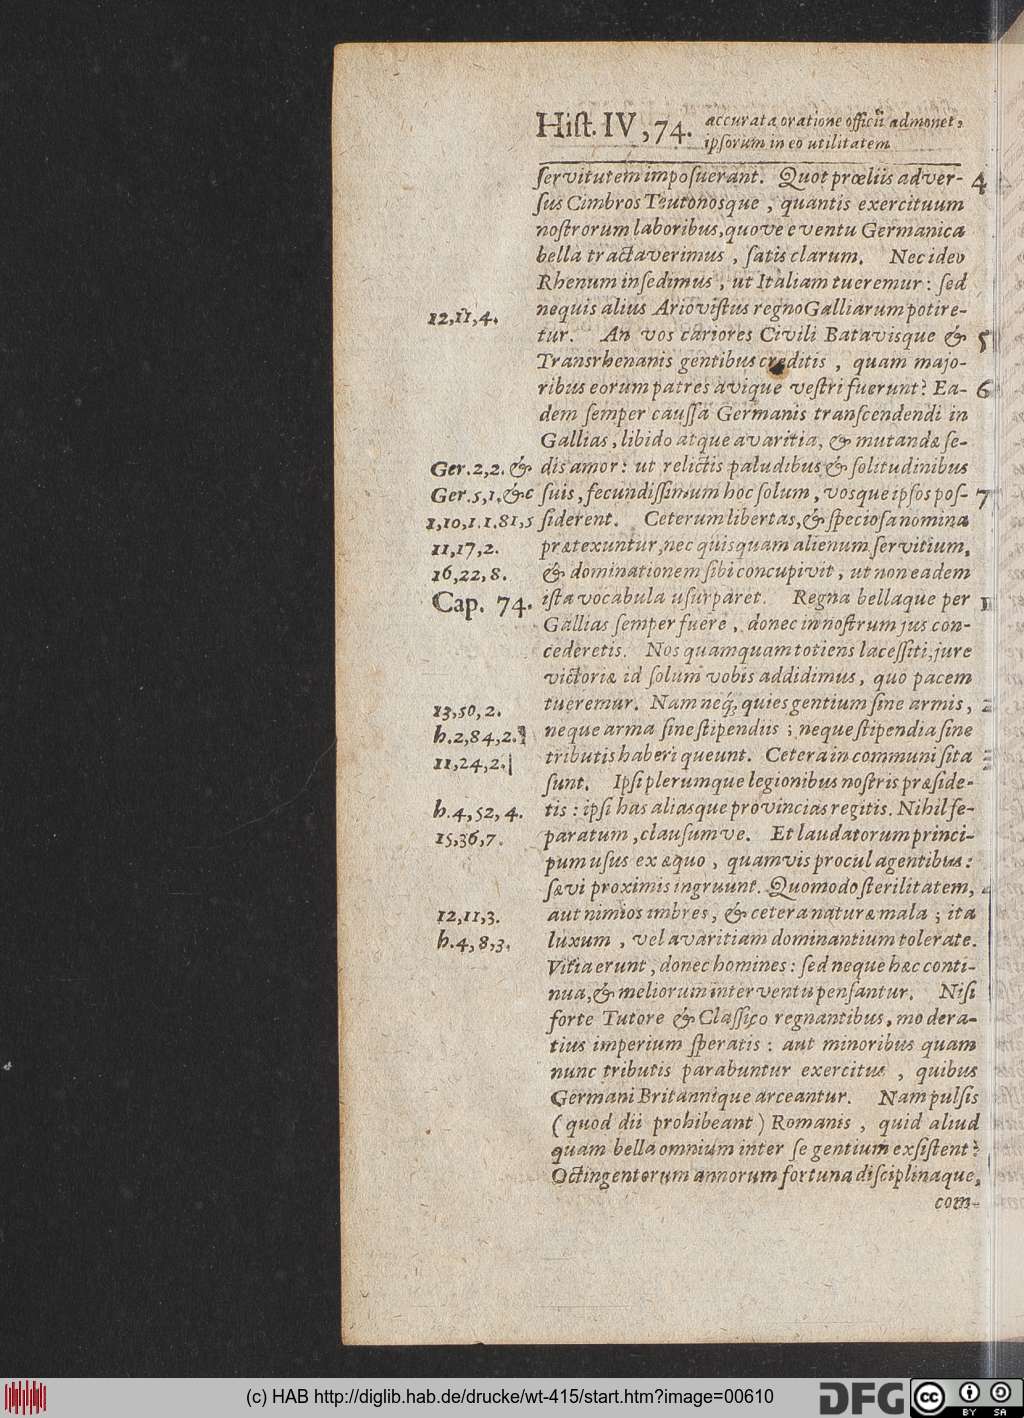 Hiſt. IV, 74. accurata oratione officii admonet,
ipſorum in eo utilitatem
ſervitutem impoſuerant. Quot prœliis adver- 4
ſus Cimbros Teutonosque, quantis exercituum
noſtrorum laboribus, quove eventu Germanica
bella tractaverimus, ſatis clarum. Nec ideo
Rhenum inſedimus, ut Italiam tueremur: ſed
12,11,4. nequis alius Arioviſtus regno Galliarum potire-
tur. An vos cariores Civili Batavisque & 5
Transrhenanis gentibus creditis, quam majo-
ribus eorum patres avique veſtri fuerunt? Ea- 6
dem ſemper cauſſa Germanis tranſcendendi in
Gallias, libido atque avaritia, & mutandæ ſe-
Ger. 2,2. & dis amor: ut relictis paludibus & ſolitudinibus
Ger. 5,1. &c ſuis, fecundiſſimum hoc ſolum, vosque ipſos poſ- 7
1,10,1. 1.81,5 ſiderent. Ceterum libertas, & ſpecioſa nomina
11,17,2. prætexuntur, nec quisquam alienum ſervitium,
16,22,8. & dominationem ſibi concupivit, ut non eadem
Cap. 74. iſta vocabula uſurparet. Regna bellaque per 1
Gallias ſemper fuere, donec in noſtrum jus con-
cederetis. Nos quamquam totiens laceſſiti, jure
victoriæ id ſolum vobis addidimus, quo pacem
13,50,2. tueremur. Nam neq́; quies gentium ſine armis, 2
h. 2,84,2. neque arma ſine ſtipendiis; neque ſtipendia ſine
11,24,2. tributis haberi queunt. Cetera in communi ſita 3
ſunt. Ipſi plerumque legionibus noſtris præſide-
h. 4,52,4. tis: ipſi has aliasque provincias regitis. Nihil ſe-
15,36,7. paratum, clauſumve. Et laudatorum princi-
pum uſus ex æquo, quamvis procul agentibus:
ſævi proximis ingruunt. Quomodo ſterilitatem, 4
12,11,3. aut nimios imbres, & cetera naturæ mala; ita
h. 4,8,3. luxum, vel avaritiam dominantium tolerate.
Vitia erunt, donec homines: ſed neque hæc conti-
nua, & meliorum interventu penſantur. Niſi
forte Tutore & Claſſico regnantibus, modera-
tius imperium ſperatis: aut minoribus quam
nunc tributis parabuntur exercitus, quibus
Germani Britannique arceantur. Nam pulſis
(quod dii prohibeant) Romanis, quid aliud
quam bella omnium inter ſe gentium exſiſtent?
Octingentorum annorum fortuna diſciplinaque,
com-
(c) HAB http://diglib.hab.de/drucke/wt-415/start.htm?image=00610
DFG
cc BY SA